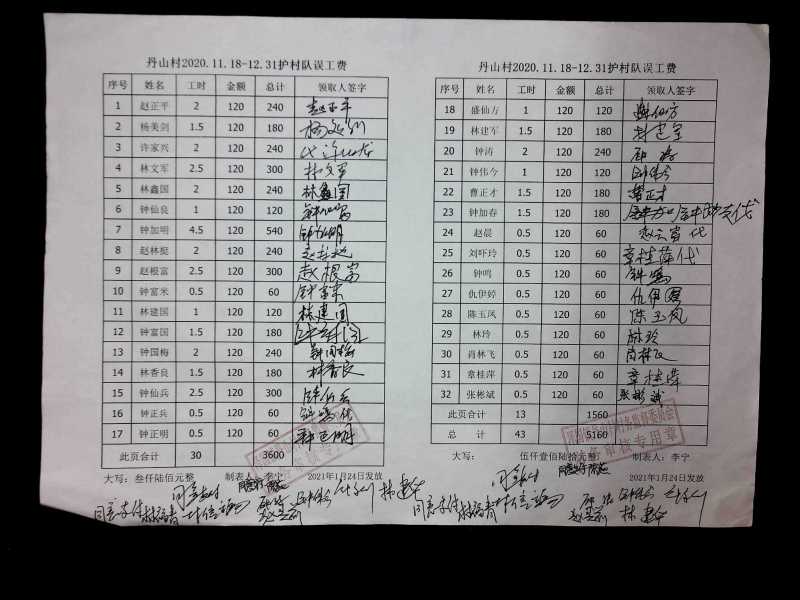 丹山村2020.11.18-12.31护村队误工费
序号 姓名 工时 金额 总计 领取人签字
1 赵正平 2 120 240 赵正平
2 杨美剑 1.5 120 180
3 许家兴 2 120 240
4 林文军 2.5 120 300 林文军
5 林鑫国 2 120 240 林鑫国
6 钟仙良 1 120 120
7 钟加明 4.5 120 540 钟加明
8 赵林挺 2 120 240
9 赵根富 2.5 120 300 赵根富
10 钟富米 0.5 120 60 钟富米
11 林建国 1 120 120 林建国
12 钟富国 1.5 120 180
13 钟国梅 2 120 240 钟国梅
14 林香良 1.5 120 180 林香良
15 钟仙兵 2.5 120 300 钟仙兵
16 钟正兵 0.5 120 60 钟鸣代
17 钟正明 0.5 120 60 钟正明
此页合计 30 3600
大写： 叁仟陆佰元整 制表人：李宁 2021年1月24日发放
同意支付
丹山村2020.11.18-12.31护村队误工费
序号 姓名 工时 金额 总计 领取人签字
18 盛仙方 1 120 120 盛仙方
19 林建军 1.5 120 180 林建军
20 钟涛 2 120 240 钟涛
21 钟伟今 1 120 120 钟伟今
22 曹正才 1.5 120 180 曹正才
23 钟加春 1.5 120 180
24 赵晨 0.5 120 60 赵六富代
25 刘吓玲 0.5 120 60 章桂萍代
26 钟鸣 0.5 120 60 钟鸣
27 仇伊婷 0.5 120 60 仇伊婷
28 陈玉凤 0.5 120 60 陈玉凤
29 林玲 0.5 120 60 林玲
30 肖林飞 0.5 120 60 肖林飞
31 章桂萍 0.5 120 60 章桂萍
32 张彬斌 0.5 120 60 张彬斌
此页合计 13 1560
总 计 43 5160
大写： 伍仟壹佰陆拾元整 制表人：李宁
2021年1月24日发放
同意支付
审核专用章